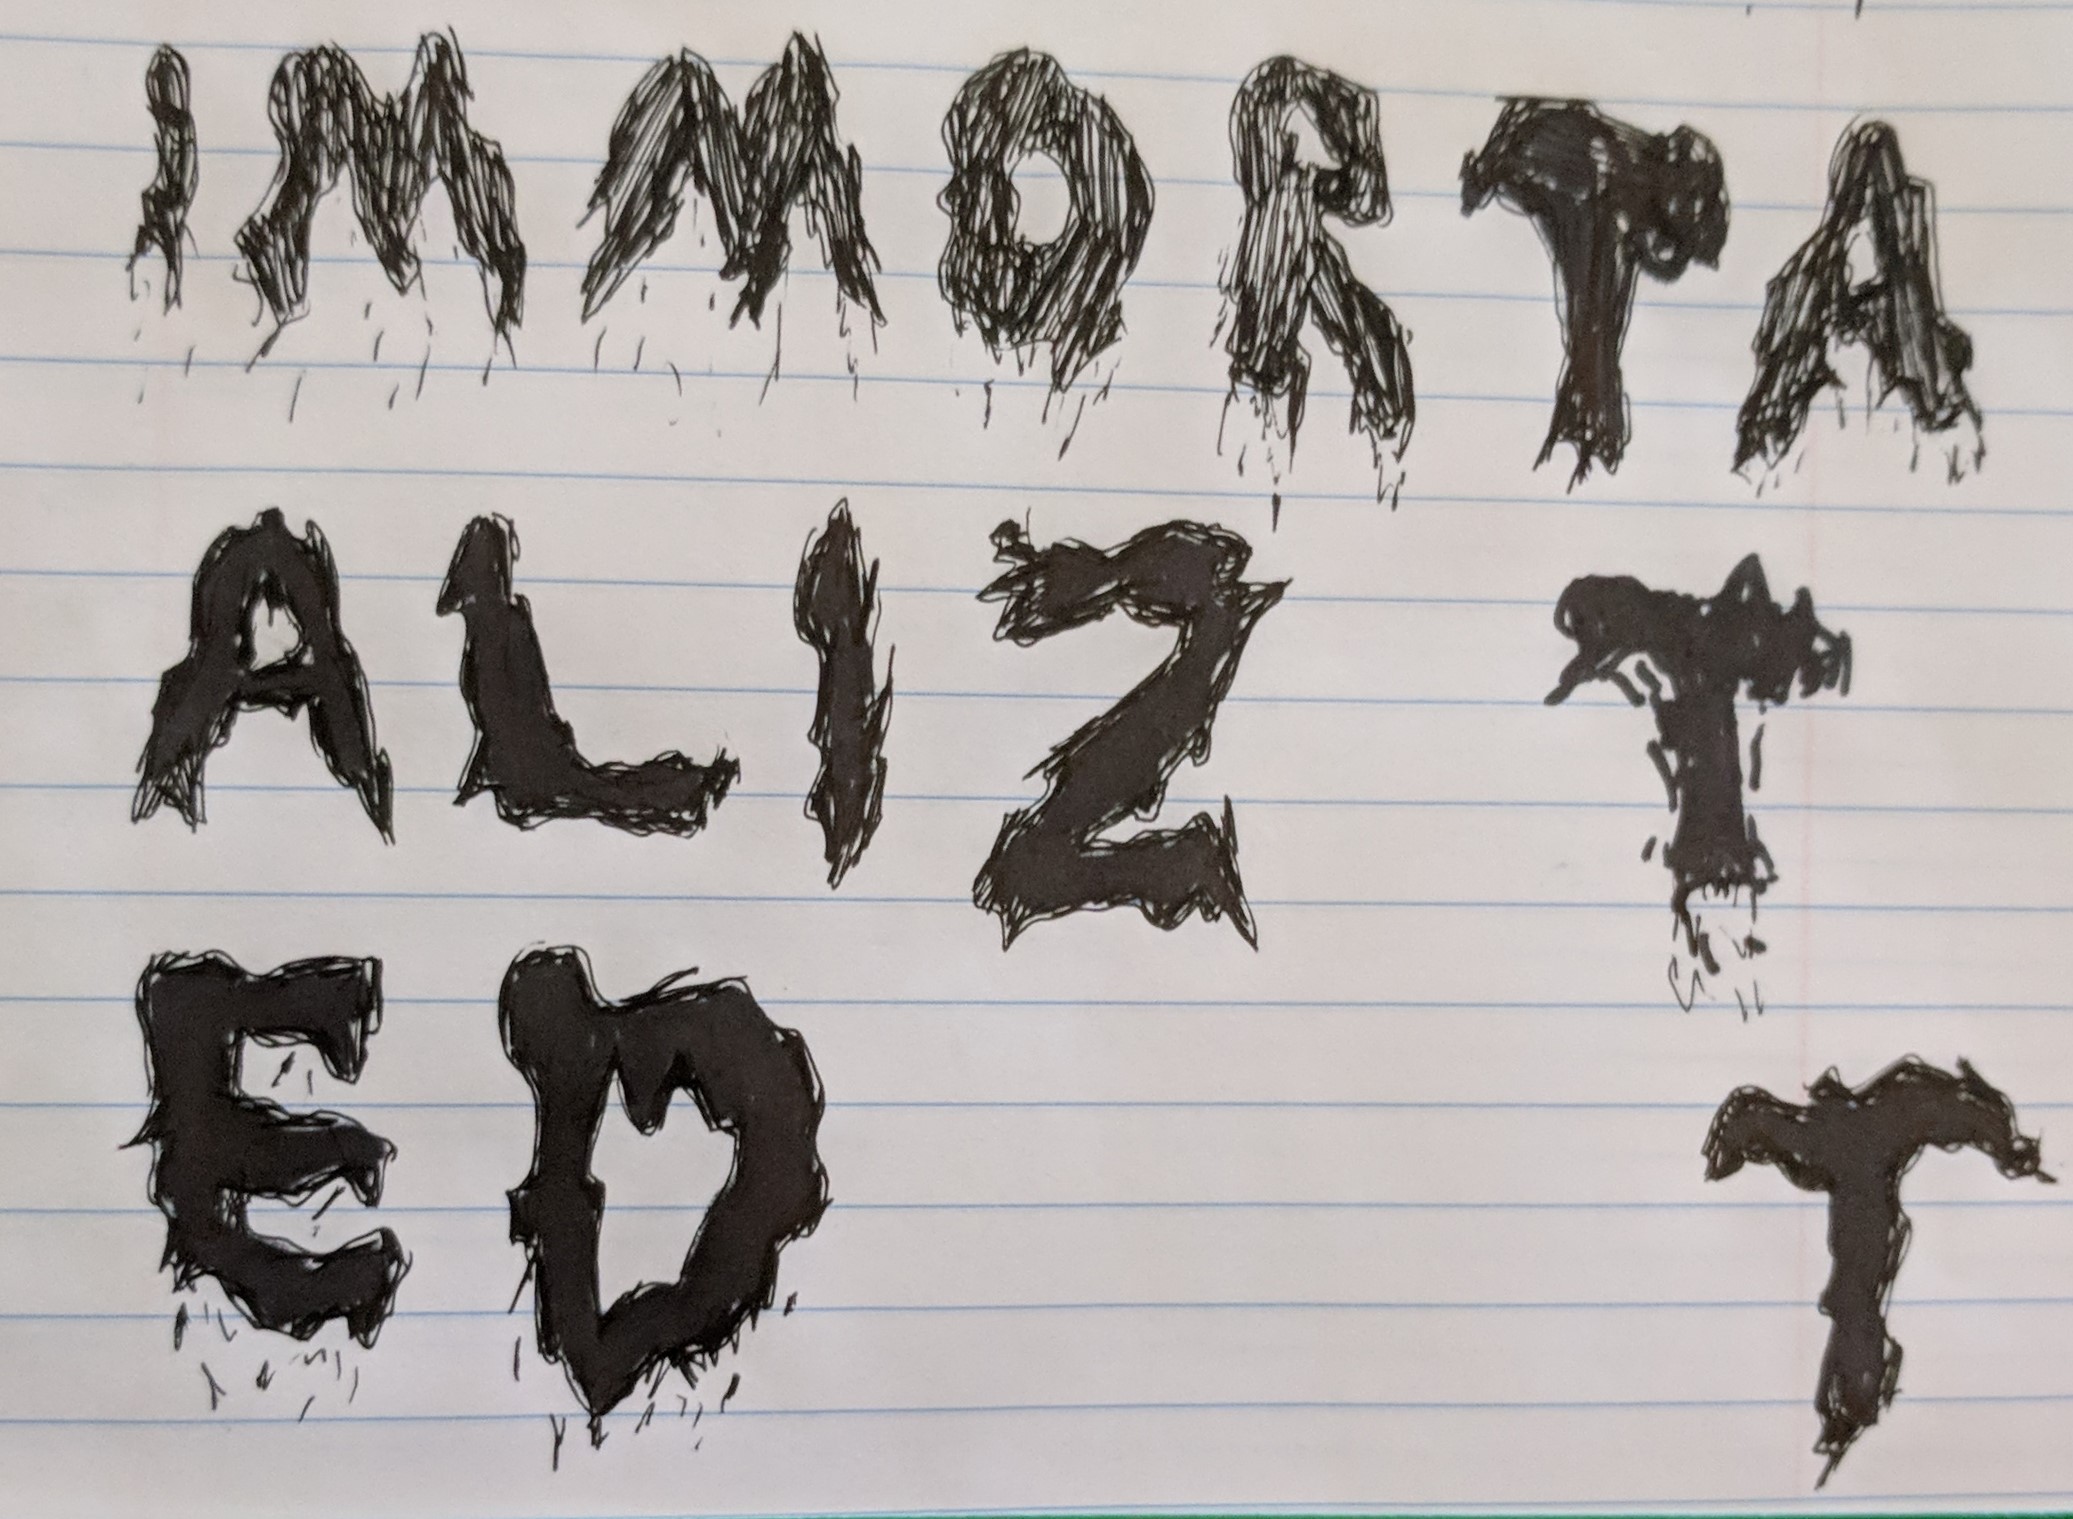 IMMORTA
ALIZ T
ED T